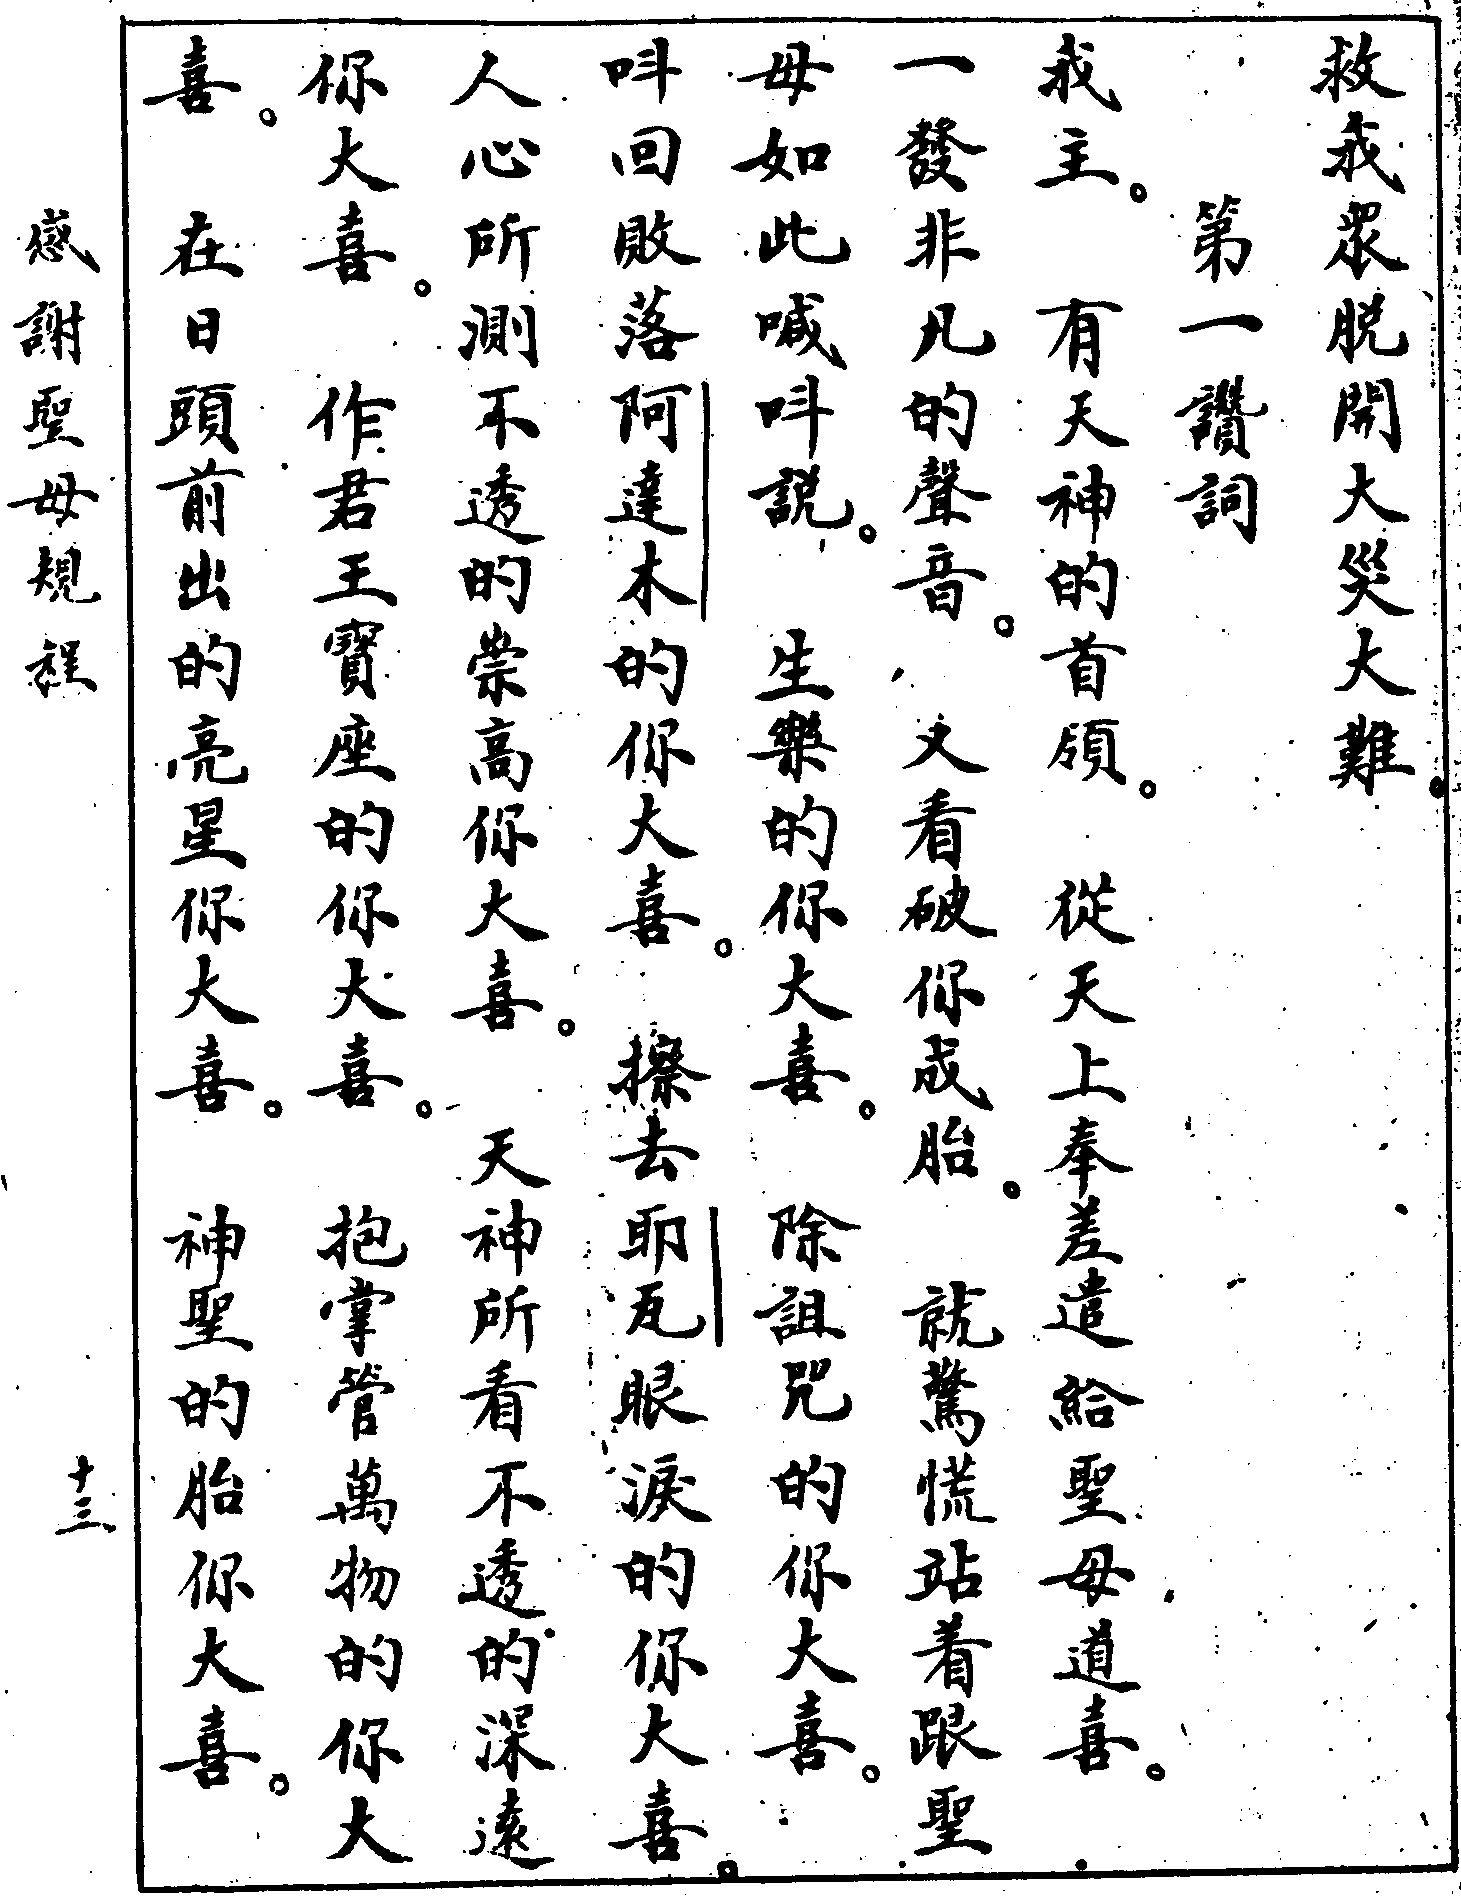 救我衆脱開大災大難。
第一讚詞
我主。有天神的首領。從天上奉差遣給聖母道喜。
一發非凡的聲音。又看破你成胎。就驚慌站着跟聖
母如此喊呌説。生樂的你大喜。除詛咒的你大喜。
呌回敗落阿達木的你大喜。擦去耶瓦眼淚的你大喜。
人心所測不透的崇高你大喜。天神所看不透的深遠
你大喜。作君王寶座的你大喜。抱掌管萬物的你大
喜。在日頭前出的亮星你大喜。神聖的胎你大喜。
感謝聖母規程
十三